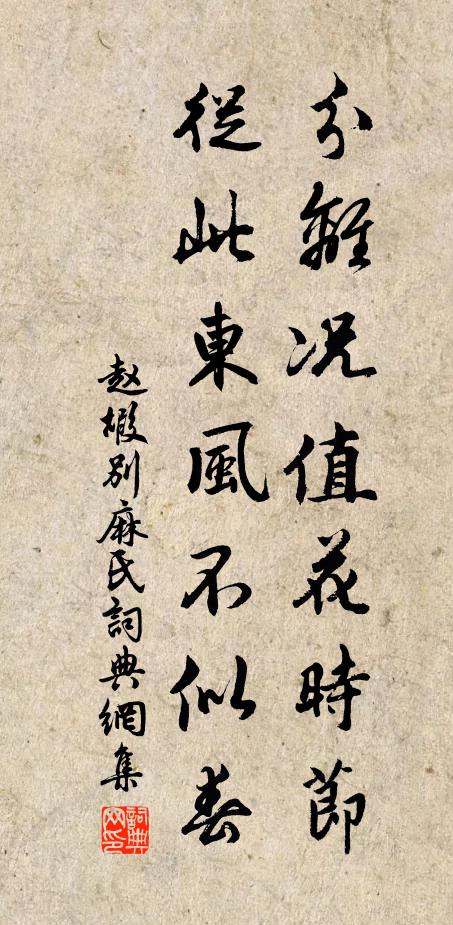 分離況值花時節
從此東風不似春
赵嘏别麻氏詞典網集
詞典网印